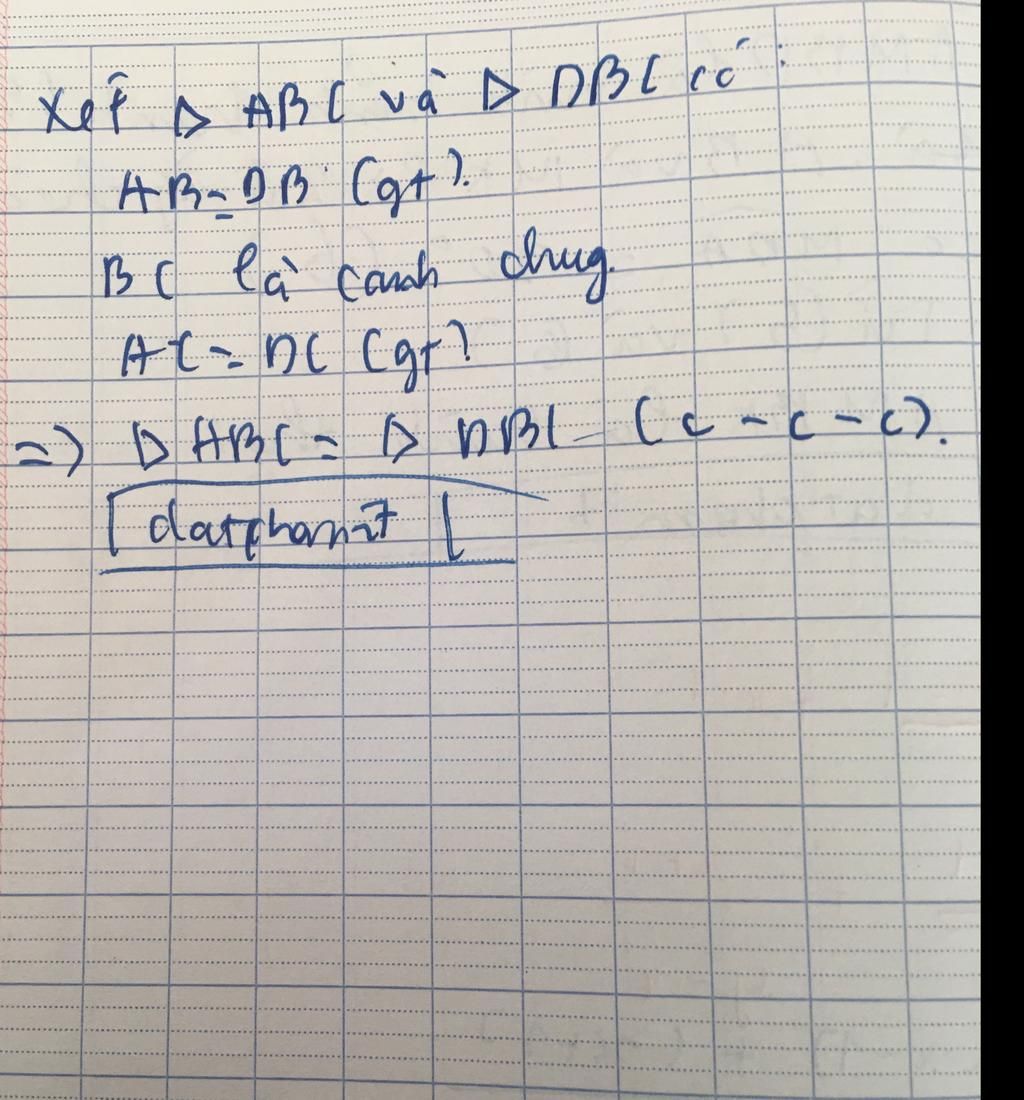 Xét ∆ ABC và ∆ DBC có :
AB = DB (gt).
BC là cạnh chug.
AC = DC (gt)
=> ∆ ABC = ∆ DBC (c - c - c).